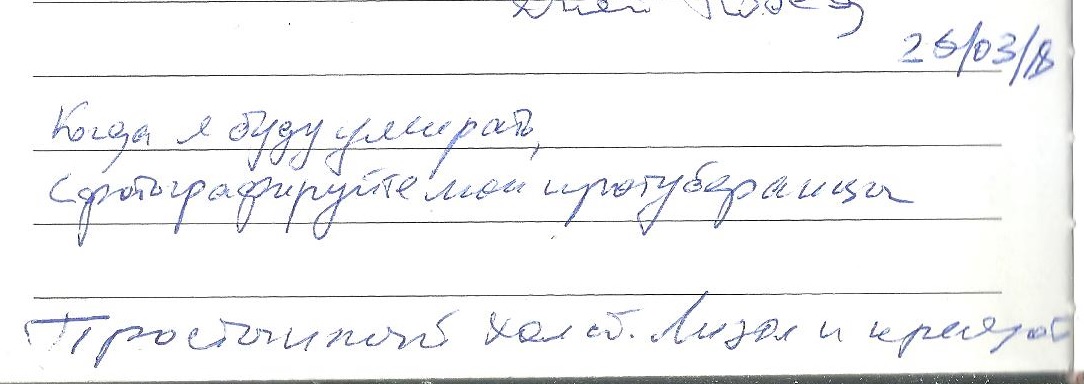 26/03/18
Когда я буду умирать,
сфотографируйте мои протуберанцы
Простынный холст. Лизол и креозот